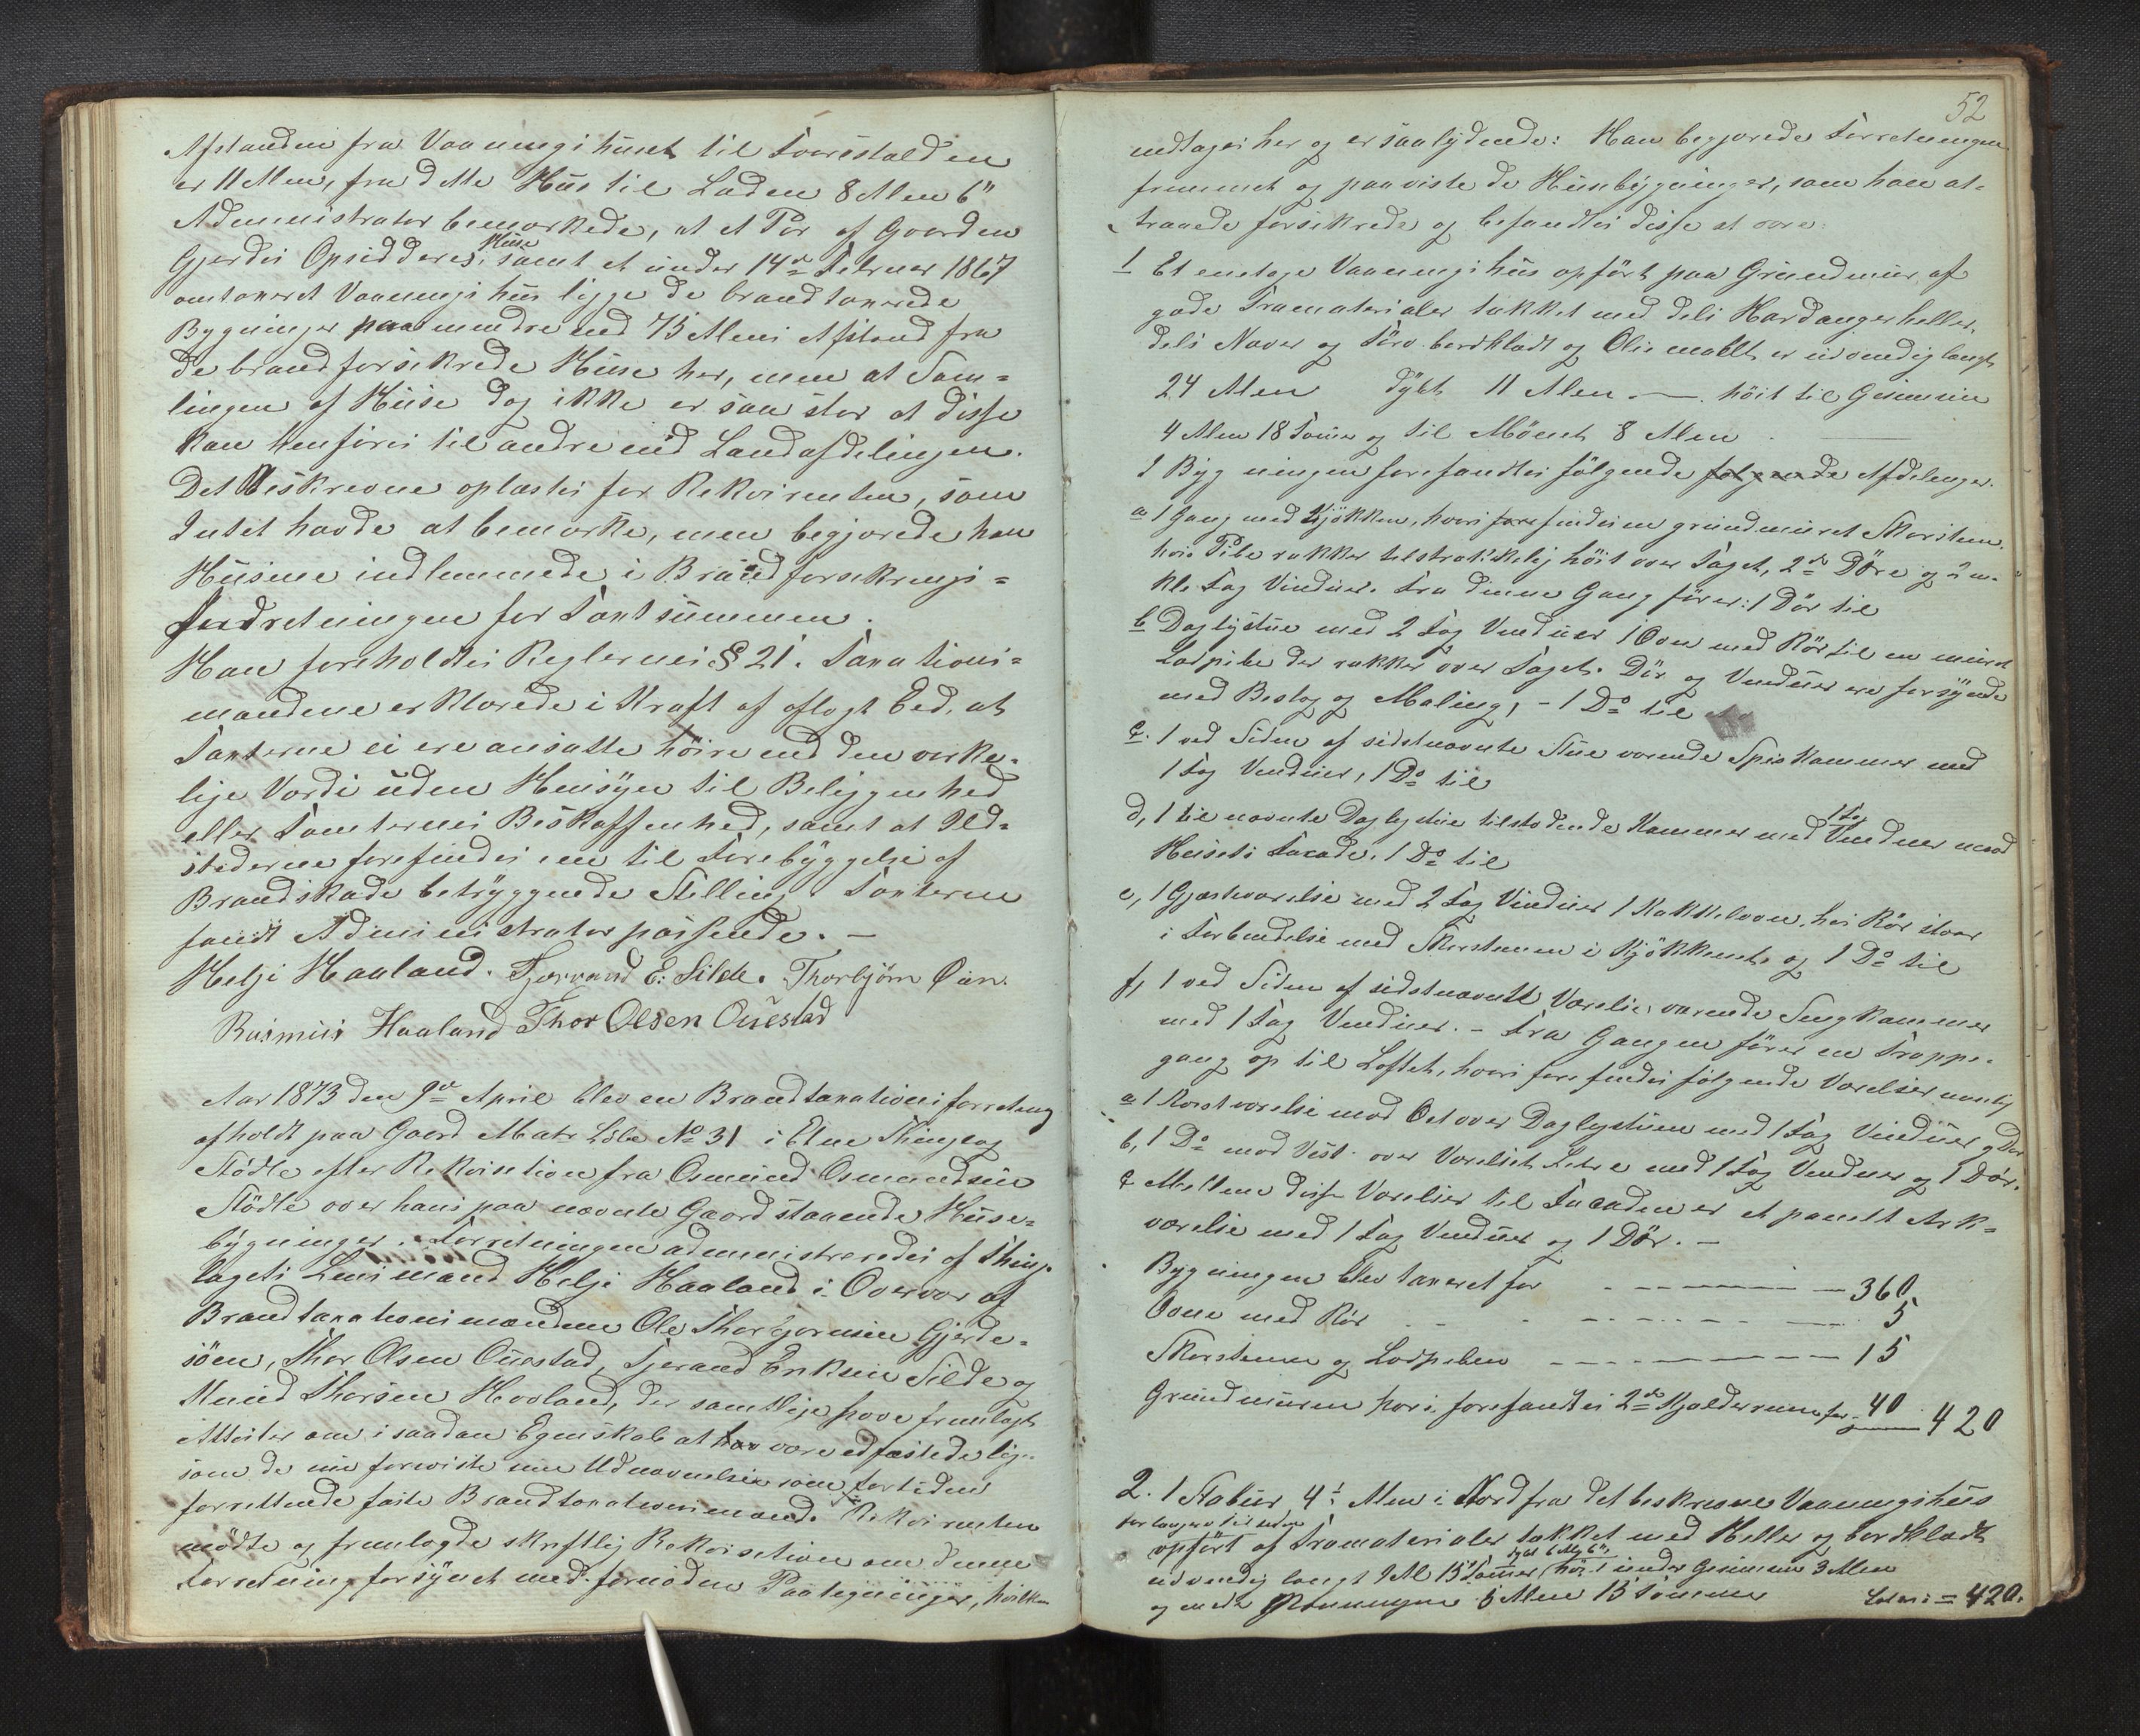 Afstanden fra Vaaningshuset til Foeresstalden
er 11 Alen, fra dette Huus til Laden 8 Alen 6"
Administrator bemærkede, at et Par af Gaarden
Gjerdes Opsidderes Huse samt et under 14de Februar 1867
omtaxeret Vaaningshuus ligge de brandtaxerede
Bygninger paa mindre end 75 Alens Afstand fra
de brandforsikrede Huse her, men at Sam-
lingen af Huse dog ikke er saa stor at disse
kan henføres til andre end Landafdelingen.
Det Beskrevne oplæstes for Rekvirenten, som
Intet havde at bemærke, men begjærede han
Husene indlemmede i Brandforsikrings-
Indretningen for Taxtsummen.
Han foreholdtes Reglernes § 21. Taxations-
mændene erklærede i Kraft af aflagt Eed, at
Taxterne ei ere ansatte høire end den virke-
lige Værdi uden Hensyn til Beliggenhed
eller Tomternes Beskaffenhed, samt at Ild-
stederne forefindes i en til Forebyggelse af
Brandskade betryggende Stilling. Taxterne
fandt Administrator passende. —
Helje Haaland. Tjerrand E: Silde. Thorbjørn Øien.
Rasmus Haaland Thor Olsen Questad
Aar 1873 den 9de April blev en Brandtaxationsforretning
afholdt paa Gaard Matr Løbe No 31 i Etne Thinglag
Stødle efter Rekvisition fra Osmund Osmundsen
Stødle over hans paa nævnte Gaard staaende Huse-
bygninger. Forretningen administreredes af Thing-
lagets Lensmand Helje Haaland i Overvær af
Brandtaxationsmændene Ole Thorbjørnsen Gjerde-
søen, Thor Olsen Questad, Tjerand Eriksen Silde og
Knud Thorsen Hovland, der samtlige have fremlagt
Attester om i saadan Egenskab at være edfæstede lige-
som de nu foreviste sine Udnævnelser som for tiden
forrettende faste Brandtaxationsmænd. Rekvirenten
mødte og fremlagde skriftlig Rekvisition om denne
Forretning forsynet med fornøden Paategninger, hvilken
52
indtages her og er saalydende: Han begjærede Forretningen
fremmet og paaviste de Husebygninger, som han at-
traaede forsikrede og befandtes disse at være:
1 Et enetages Vaaningshuus opført paa Grundmuur af
gode Træmaterialer tækket med dels Hardangerheller,
dels Næver og Tørv bordklædt og Oliemalt er udvendig langt
24 Alen dybt 11 Alen — høit til Gesimsen
4 Alen 18 Tommer og til Mønet 8 Alen
I Bygningen forefandtes følgende følgende Afdelinger.
a 1 Gang med Kjøkken, hvori forefindes en grundmuret Skorsten,
hvis Pibe rækker tilstrækkelig høit over Taget, 2de Døre og 2 en-
kle Fag Vinduer. Fra denne Gang fører: 1 Dør til
b Dagligstue med 2 Fag Vinduer 1 Ovn med Rør til en muret
Lodpibe der rækker over Taget. Dør og Vinduer ere forsynede
med Beslag og Maling, - 1 Do til
c. 1 ved Siden af sidstnævnte Stue værende Spiskammer med
1 Fag Vinduer, 1 Do til
d, 1 til nævnte Dagligstue tilstødende Kammer med 1 Fag Vinduer mod
Husets Facade. 1 Do til
e, 1 Gjæstværelse med 2 Fag Vinduer 1 Kakkelovn, hvis Rør staar
i Forbindelse med Skorstenen i Kjøkkenet, og 1 Do til
f, 1 ved Siden af sidstnævnte Værelse værende Sengkammer
med 1 Fag Vinduer. - Fra Gangen fører en Trappe-
gang op til Loftet, hvori forefindes følgende Værelser nemlig
a 1 Kvistværelse mod Øst over Dagligstuen med 1 Fag Vinduer og Dør
b, 1 Do mod Vest over Værelset Litr e med 1 Fag Vinduer og 1 Dør.
c Mellem disse Værelser til Facaden er et panelt Ark-
værelse med 1 Fag Vinduer og 1 Dør. —
Bygningen blev taxeret for 360
Ovne med Rør 5
Skorstenen og Lodpiben 15
Grundmuren hvori forefandtes 2de Kjælderrum for 40 420
2. 1 Stabur 4½ Alen i Nord fra det beskrevne Vaaningshus
for længere Tid siden
opført af Træmaterialer tækket med Heller og bordklædt
udvendig langt 9 Al 15 Tommer dybt 6 Al 6" høit under Gesimsen 3 Alen
og under Mønningen 5 Alen 15 Tommer Lateris = 420.